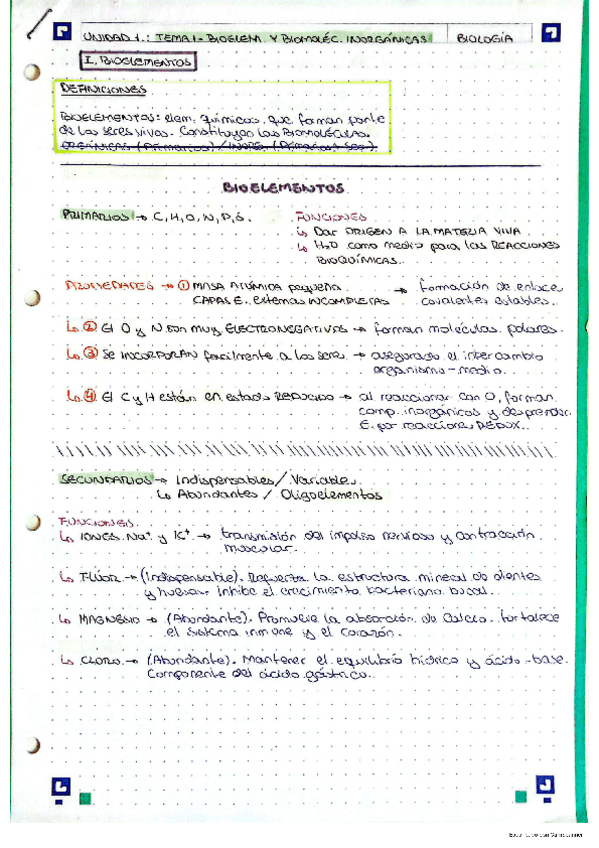 UNIDAD 1.: TEMA 1- BIOELEM. Y BIOMOLÉC. INORGÁNICAS BIOLOGÍA
I. BIOELEMENTOS
DEFINICIONES
BIOELEMENTOS: elem. químicos que forman parte
de los seres vivos. Constituyen las Biomoléculas
ORGÁNICAS (Primarios) / INORG. (Primarios + Sec.)
BIOELEMENTOS
PRIMARIOS → C, H, O, N, P, S. FUNCIONES
↳ Dar ORIGEN A LA MATERIA VIVA
↳ H2O como medio para las REACCIONES
BIOQUÍMICAS.
PROPIEDADES → ① MASA ATÓMICA pequeña → formación de enlace
CAPAS E. externas INCOMPLETAS covalentes estables.
↳ ② El O y N son muy ELECTRONEGATIVOS → forman moléculas polares.
↳ ③ Se INCORPORAN facilmente a los sere → asegurado el intercambio
organismo - medio.
↳ ④ El C y H están en estado REDUCIDO → al reaccionar con O, forman
comp. inorgánicos y desprender
E. por reacciones REDOX.
SECUNDARIOS → Indispensables / Variables
↳ Abundantes / Oligoelementos
FUNCIONES
↳ IONES Na+ y K+ → transmisión del impulso nervioso y contracción
muscular.
↳ FLÚOR → (Indispensable). Refuerza la estructura mineral de dientes
y huesos inhibe el crecimiento bacteriano bucal.
↳ MAGNESIO → (Abundante). Promueve la absorción de Calcio. fortalece
el sistema inmune y el corazón.
↳ CLORO → (Abundante). Mantener el equilibrio hídrico y ácido-base.
Componente del ácido gástrico.